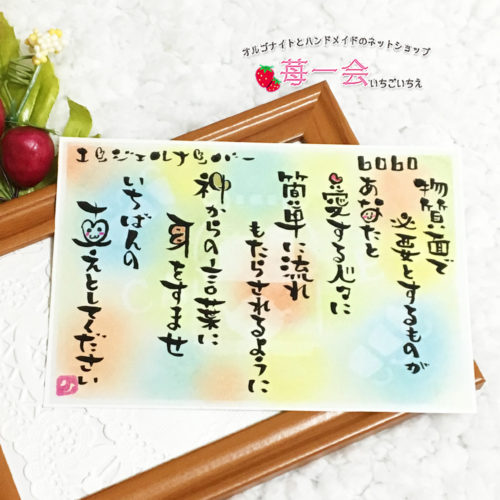 オルゴナイトとハンドメイドのネットショップ
苺一会
いちごいちえ
エンジェルナンバー
6060
物質面で
必要とするものが
あなたと
愛する人々に
簡単に流れ
もたらされるように
神からの言葉に
耳をすませ
いちばんの
支えとしてください